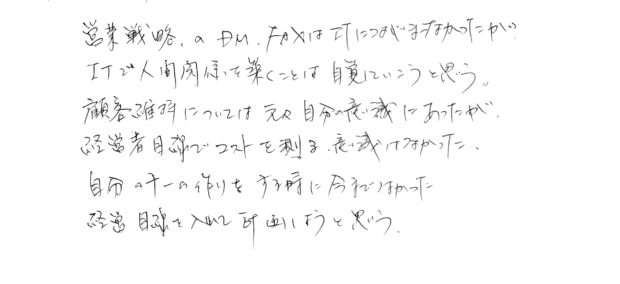 営業戦略、のDM、FAXはITにつながまずなかったが、
ITで人間関係を築くことは自覚していこうと思う。
顧客維持については元々自分の意識にあったが、
経営者目線でコストを測る意識はなかった。
自分の の作りをする時に今までなかった
経営目線を入れて計画しようと思う。